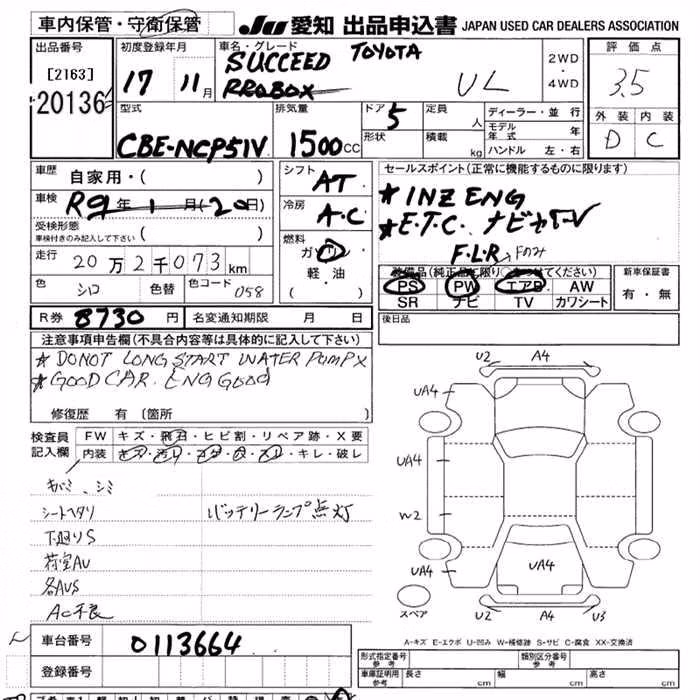 車内保管・守衛保管
JU 愛知 出品申込書 JAPAN USED CAR DEALERS ASSOCIATION
出品番号
[2163]
20136
初度登録年月
17 11月
車名・グレード
SUCCEED TOYOTA
PROBOX UL
2WD
・
4WD
評価点
3.5
外装 内装
D C
型式
CBE-NCP51V
排気量
1500cc
ドア 5
形状
定員 人
積載 kg
ディーラー・並行
モデル年式 年
ハンドル 左・右
車歴 自家用・( )
車検 R9年1月(20日)
受検形態
車検付きのみ記入して下さい ( )
走行 20万2千073km
色 シロ 色替 色コード 058
シフト AT
冷房 A・C
燃料
ガソリン
軽・油
( )
セールスポイント(正常に機能するものに限ります)
★1NZ ENG
★E.T.C. ナビ
F.L.R
装備品(純正品に限り○をつけてください)
PS PW エアB AW
SR ナビ TV カワシート
新車保証書
有・無
R券 8730 円 名変通知期限 月 日
後日品
注意事項申告欄(不具合内容等は具体的に記入して下さい)
★DO NOT LONG START WATER PUMP X
★GOOD CAR. ENG GOOD
修復歴 有 〔箇所 〕
検査員
記入欄
FW キズ・飛石・ヒビ割・リペア跡・X要
内装 キズ・汚れ・コゲ・穴・スレ・キレ・破レ
キバミ、シミ
シートヘタリ バッテリーランプ点灯
下廻りS
荷室AU
各AUS
AC不良
U2 A4
UA4
UA4
W2
UA4
UA4
スペア
U2 A4 U3
A-キズ E-エクボ U-凹み W-補修跡 S-サビ C-腐食 XX-交換済
車台番号 0113664
登録番号
形式指定番号
参考
類別区分番号
参考
車庫証明用
参考
長さ cm 幅 cm 高さ cm